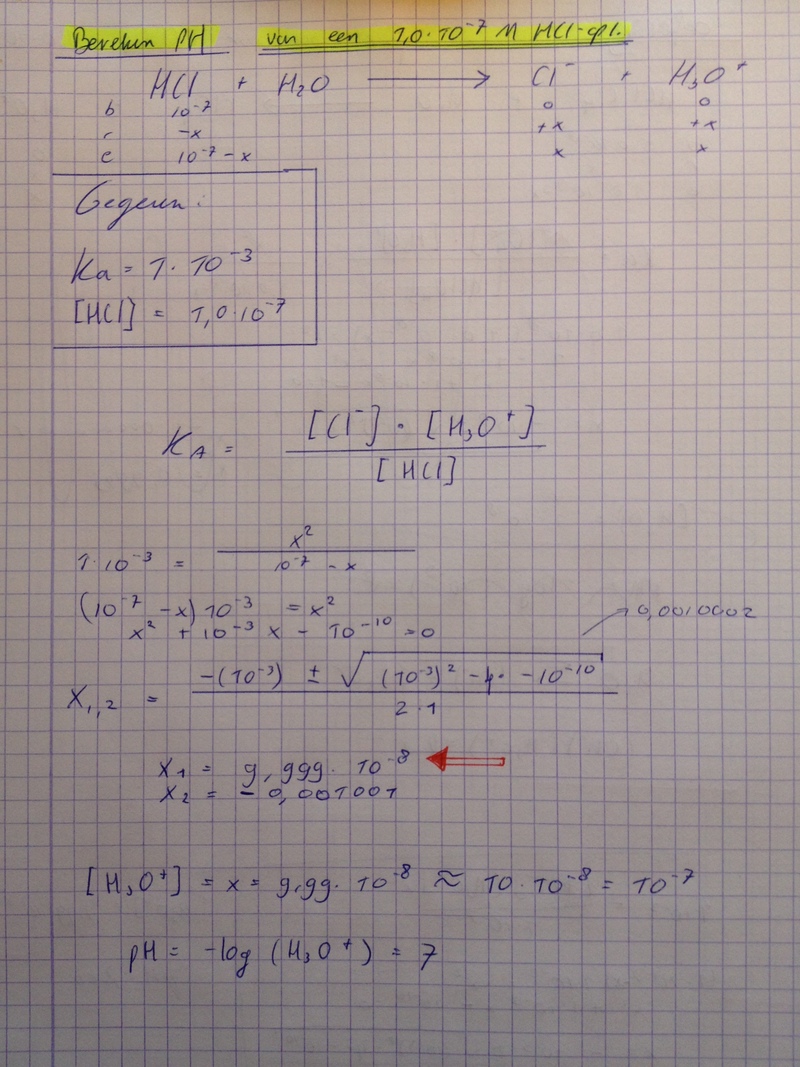 Bereken pH van een 1,0·10⁻⁷ M HCl-opl.
HCl + H₂O ⟶ Cl⁻ + H₃O⁺
b 10⁻⁷ 0 0
r -x +x +x
e 10⁻⁷ - x x x
Gegeven:
Ka = 1·10⁻³
[HCl] = 1,0·10⁻⁷
K_A = [Cl⁻]·[H₃O⁺] / [HCl]
1·10⁻³ = x² / 10⁻⁷ - x
(10⁻⁷ - x) 10⁻³ = x²
x² + 10⁻³ x - 10⁻¹⁰ = 0
0,0010002
X₁,₂ = -(10⁻³) ± √(10⁻³)² - 4· -10⁻¹⁰ / 2·1
X₁ = 9,999·10⁻⁸
X₂ = -0,001001
[H₃O⁺] = x = 9,99·10⁻⁸ ≈ 10·10⁻⁸ = 10⁻⁷
pH = -log (H₃O⁺) = 7